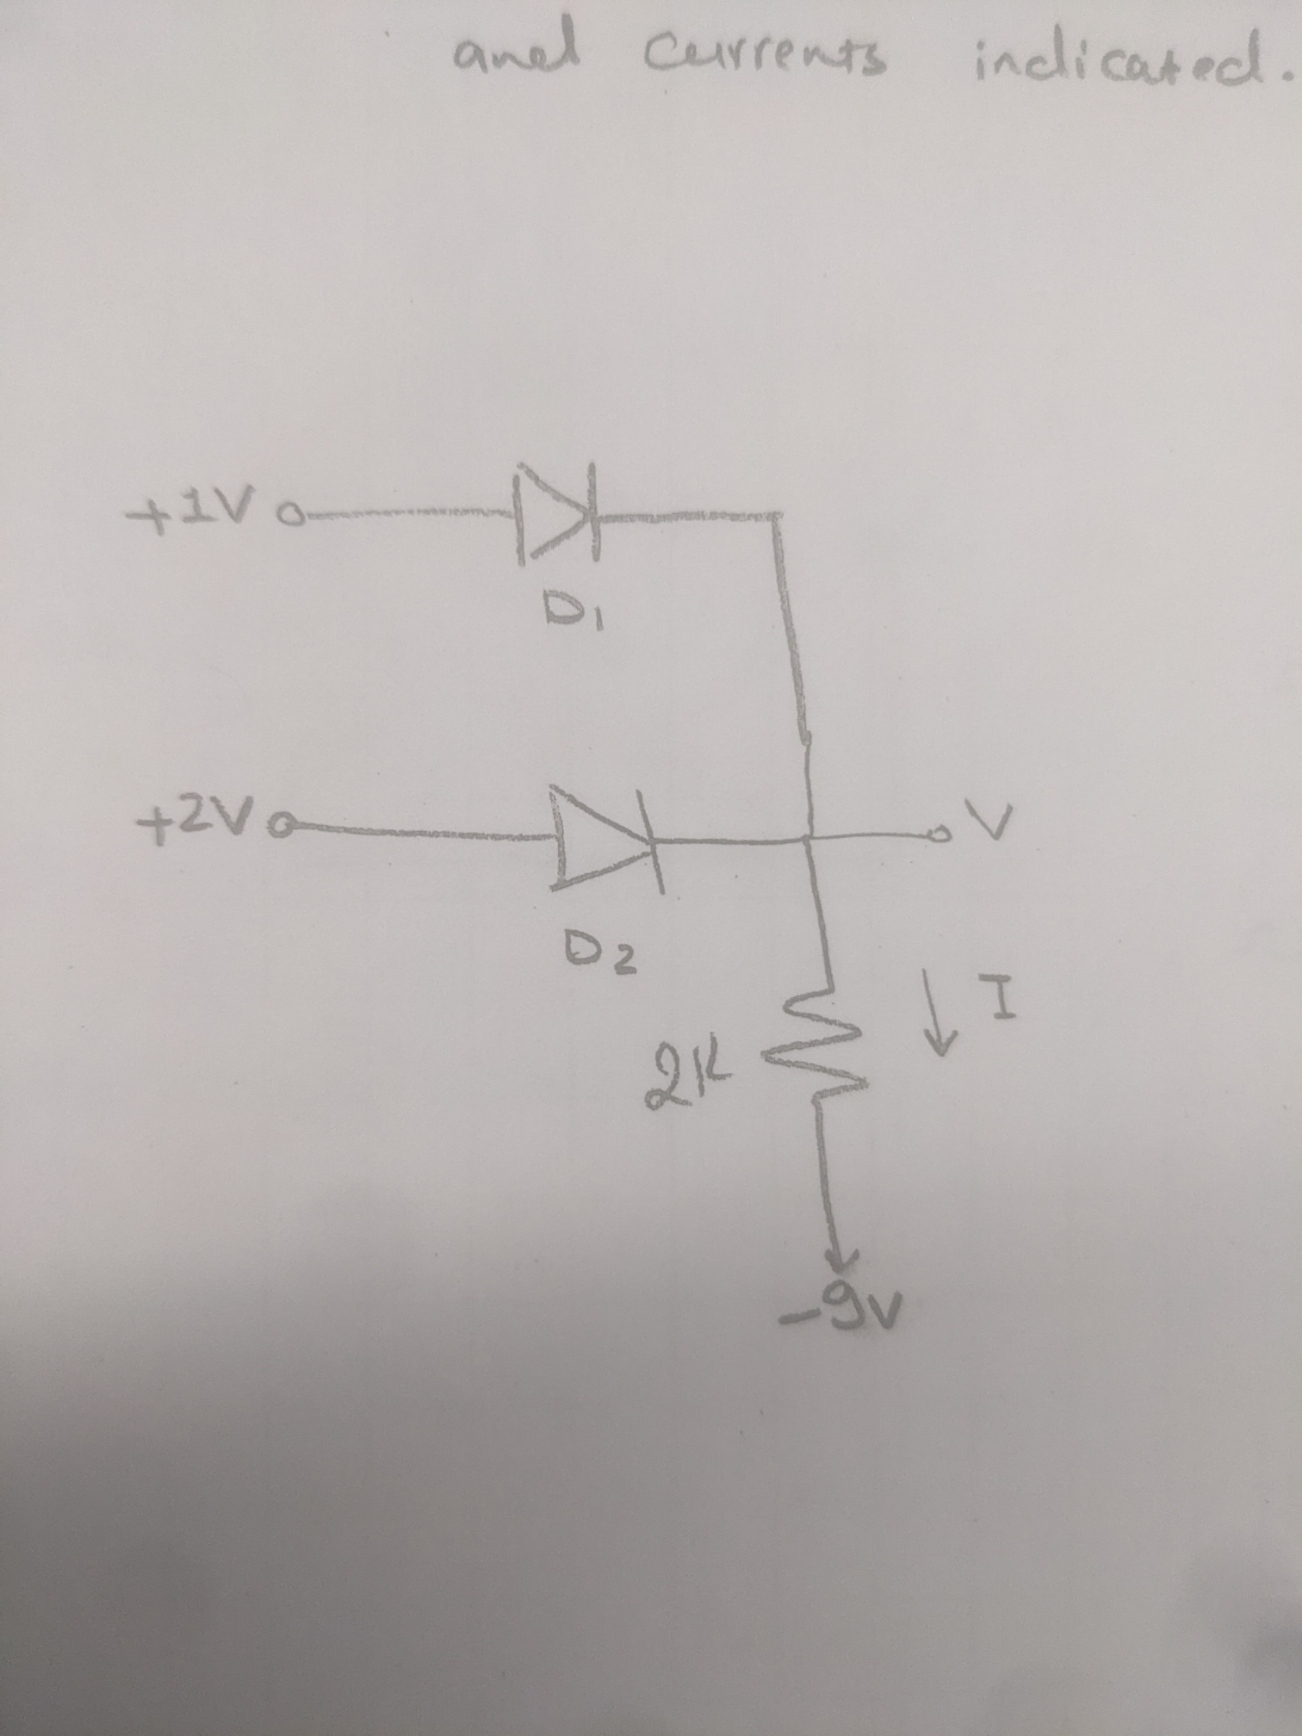 and currents indicated.
+1V
D1
+2V
V
D2
I
2K
-9V